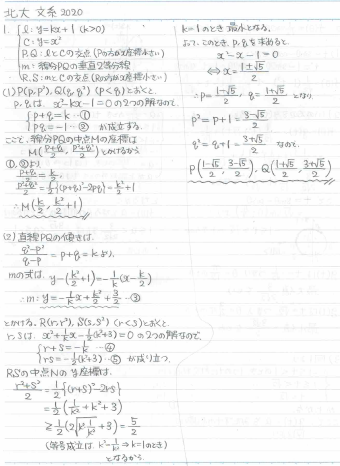 北大 文系 2020
1. { l: y=kx+1 (k>0)
C: y=x²
P, Q: lとCの交点 (Pの方がx座標小さい)
m: 線分PQの垂直2等分線
R, S: mとCの交点 (Rの方がx座標小さい)
(1) P(p, p²), Q(q, q²) (p<q) とおくと、
p, qは、x²-kx-1=0 の2つの解なので、
{ p+q=k …①
pq=-1 …② が成立する。
ここで、線分PQの中点Mの座標は
M(p+q/2, p²+q²/2) とかけるから
①, ②より
p+q/2 = k/2
p²+q²/2 = 1/2{(p+q)²-2pq} = k²/2+1
∴ M(k/2, k²/2+1)
(2) 直線PQの傾きは、
q²-p²/q-p = p+q = k より、
mの式は、y-(k²/2+1)=-1/k(x-k/2)
∴ m: y=-1/k x+k²/2+3/2 …③
とかける。R(r, r²), S(s, s²) (r<s) とおくと、
r, sは、x²+1/k x-1/2(k²+3)=0 の2つの解なので、
{ r+s=-1/k …④
rs=-1/2(k²+3) …⑤ が成り立つ。
RSの中点Nのy座標は、
r²+s²/2 = 1/2{(r+s)²-2rs}
= 1/2(1/k²+k²+3)
≧ 1/2(2√k²·1/k²+3) = 5/2
(等号成立は、k²=1/k² ⇔ k=1のとき)
となるから
k=1のとき 最小となる。
よって、このとき、p, qを求めると、
x²-x-1=0
⇔ x=1±√5/2
∴ p=1-√5/2, q=1+√5/2 となり
p²=p+1=3-√5/2
q²=q+1=3+√5/2 なので、
P(1-√5/2, 3-√5/2), Q(1+√5/2, 3+√5/2)